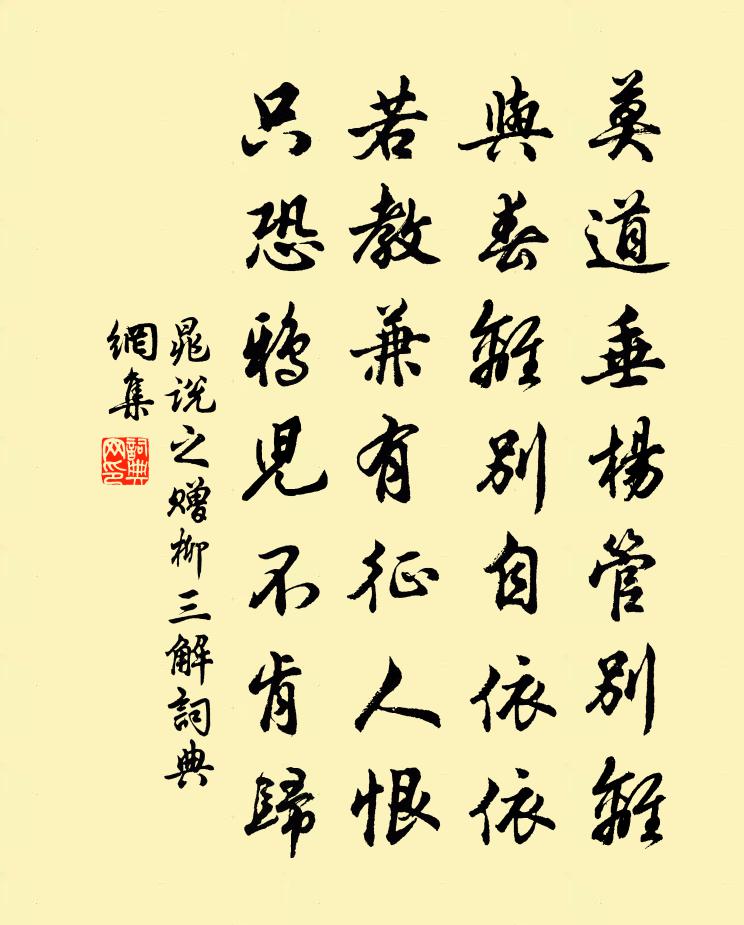 莫道垂楊管別離
與春離別自依依
若教兼有征人恨
只恐鴉兒不肯歸
晁說之贈柳三解詞典
網集
詞典
网印